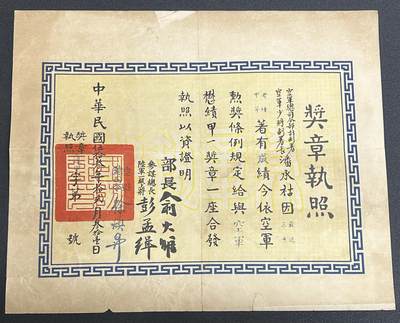 獎章執照
空軍總司令部計劃署
空軍少將副署長潘永祜因
著有成績今依空軍
勳獎條例規定給與空軍
懋績甲一獎章一座合發
執照以資證明
部長俞大維
參謀總長
陸軍上將彭孟緝
中華民國年拾月日
獎章
執照
字第
號